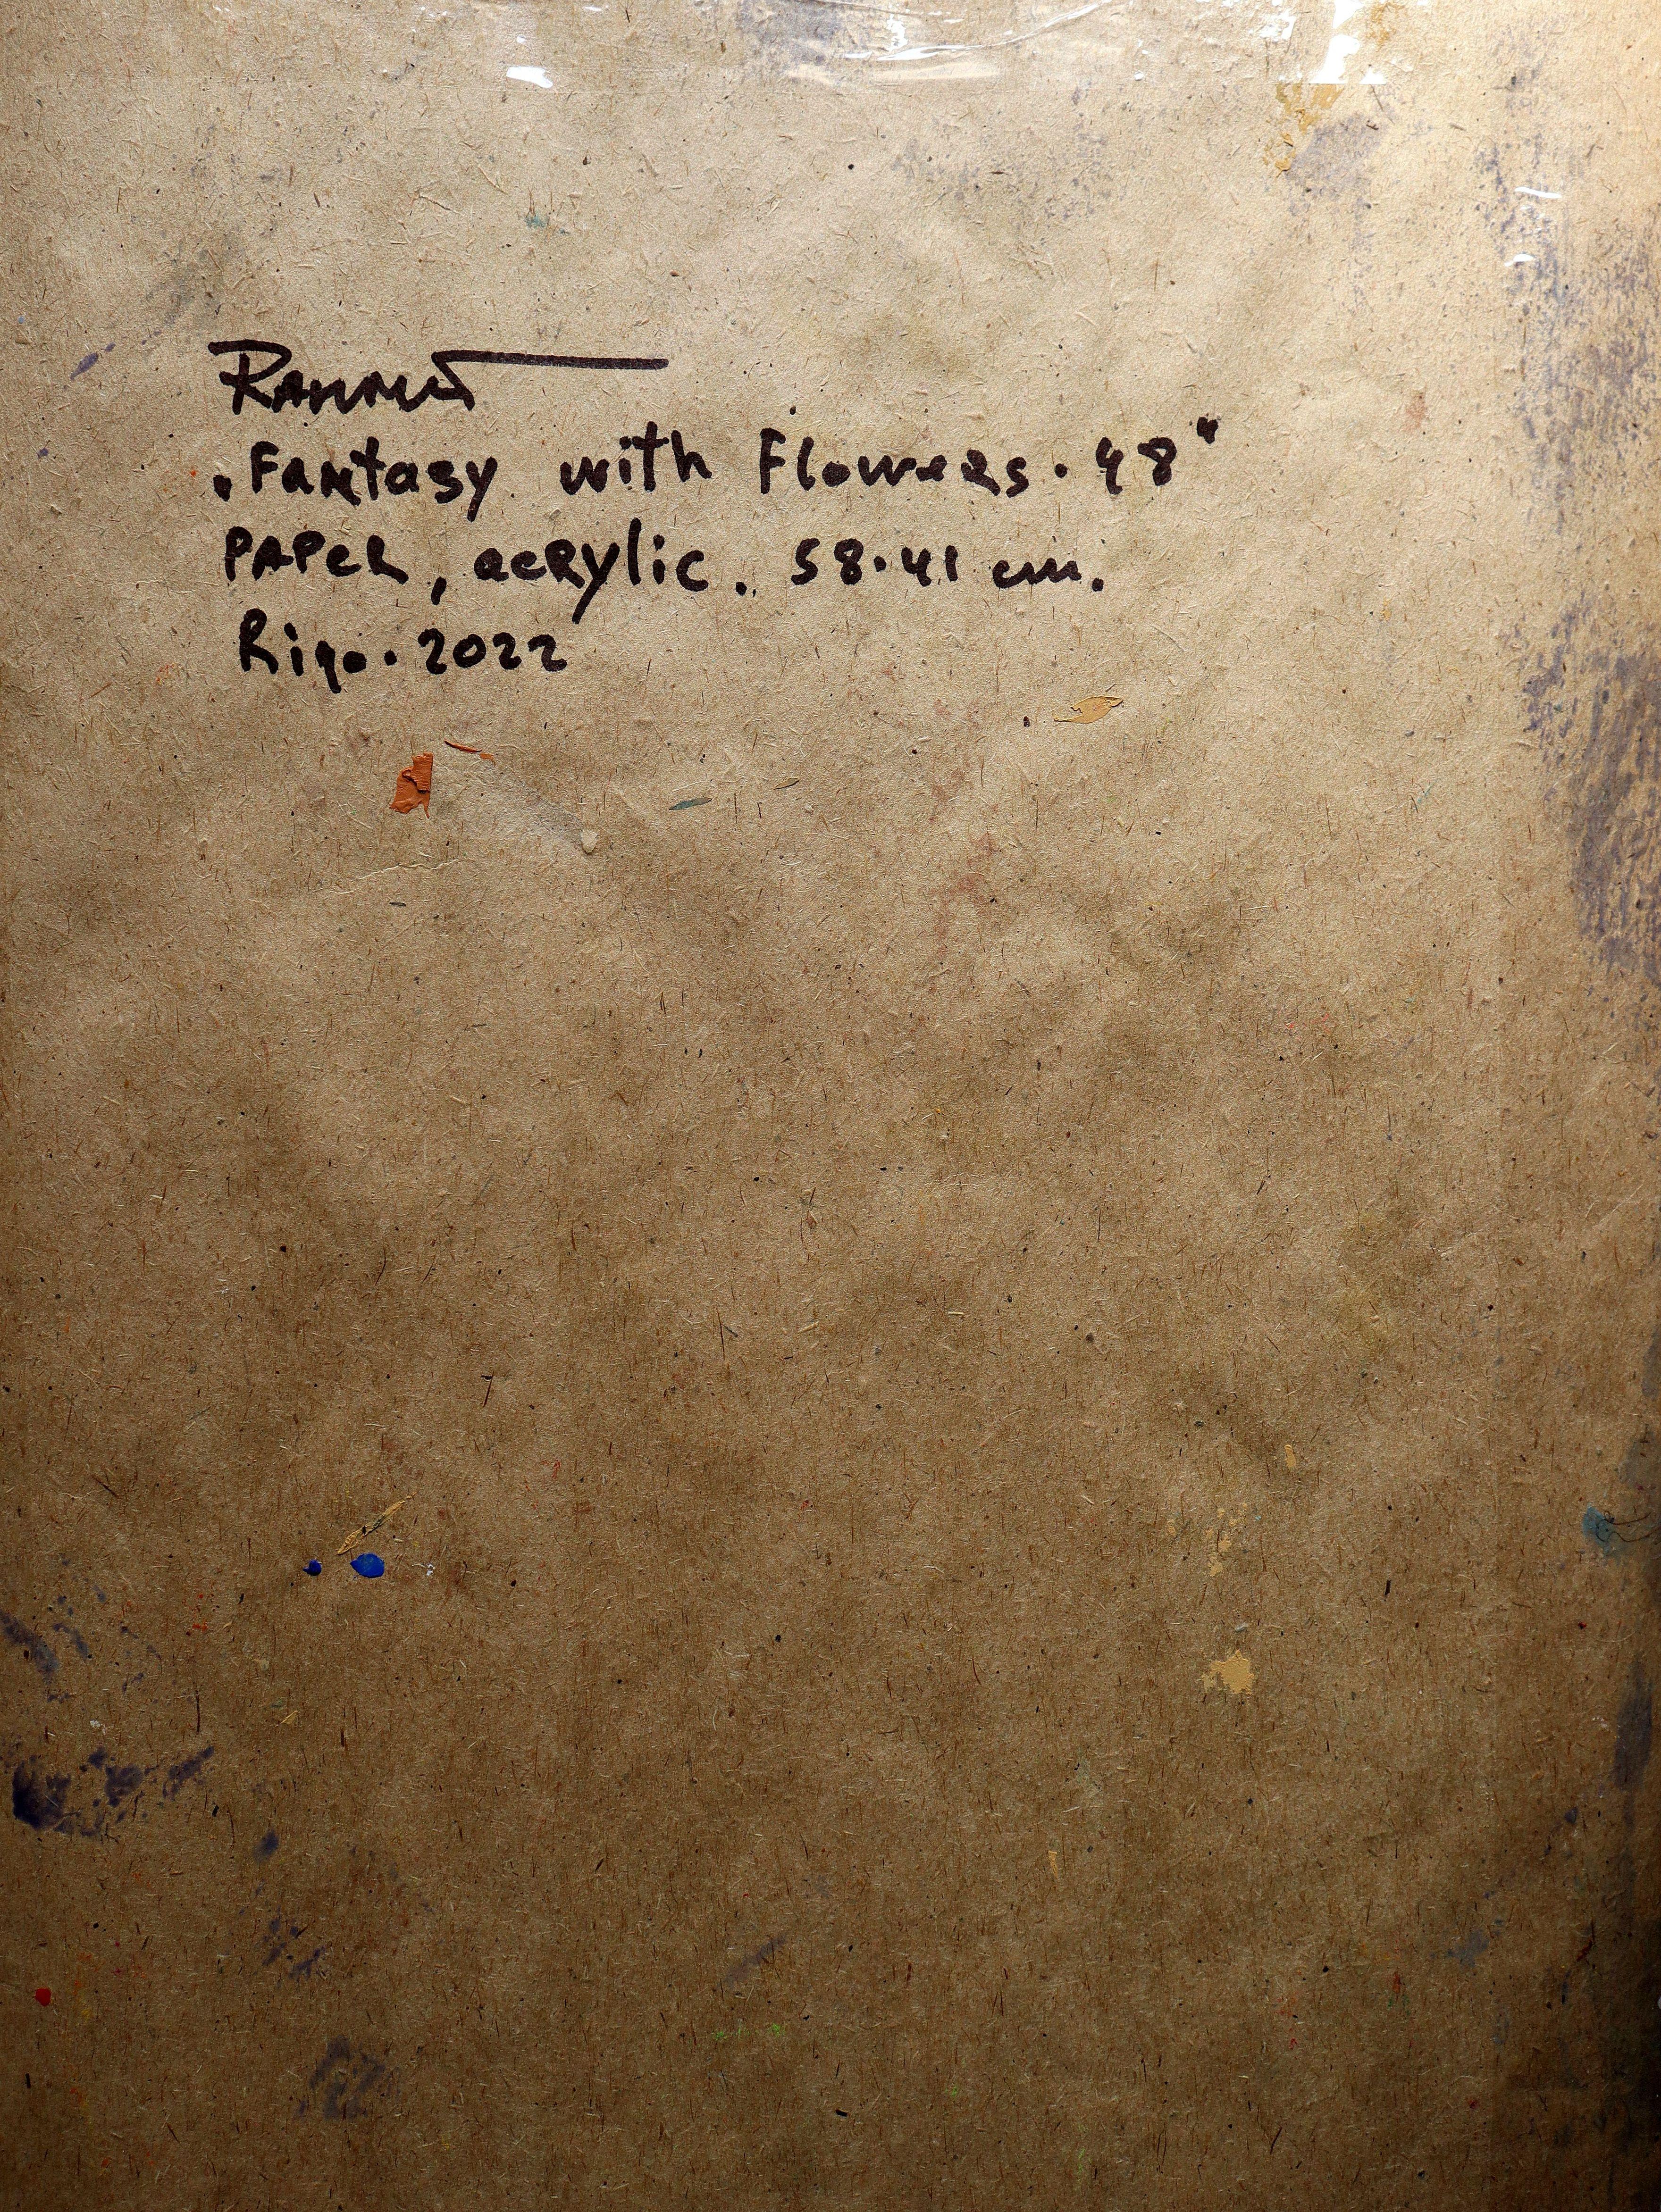 „Fantasy with Flowers·48“
PAPER, acrylic. 58·41 cm.
Riga·2022